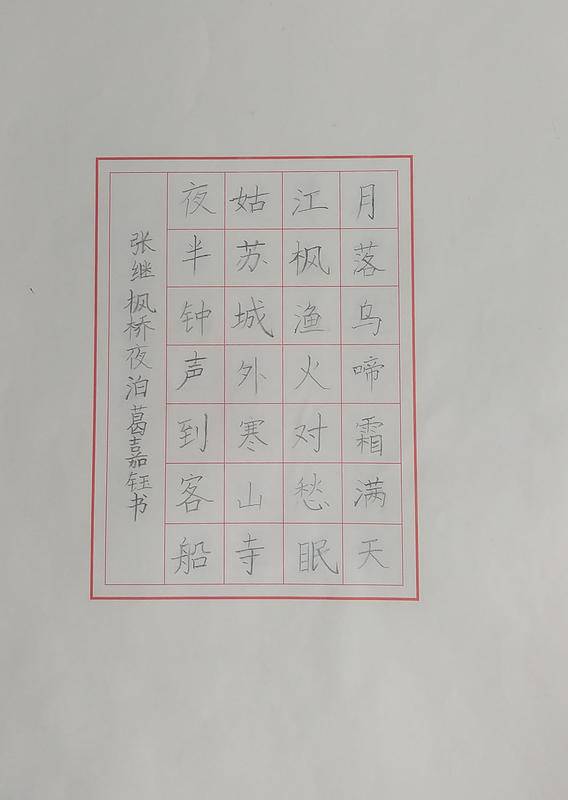 月落乌啼霜满天
江枫渔火对愁眠
姑苏城外寒山寺
夜半钟声到客船
张继枫桥夜泊葛嘉钰书